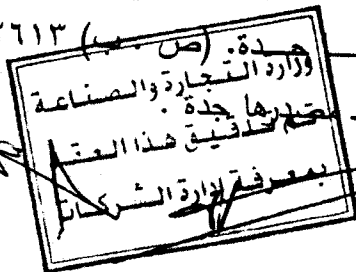 جدة. (ص . ب) ٣٦١٣
وزارة التجارة والصناعة
جدة .
تم تدقيق هذا العقد
بمعرفة إدارة الشركات